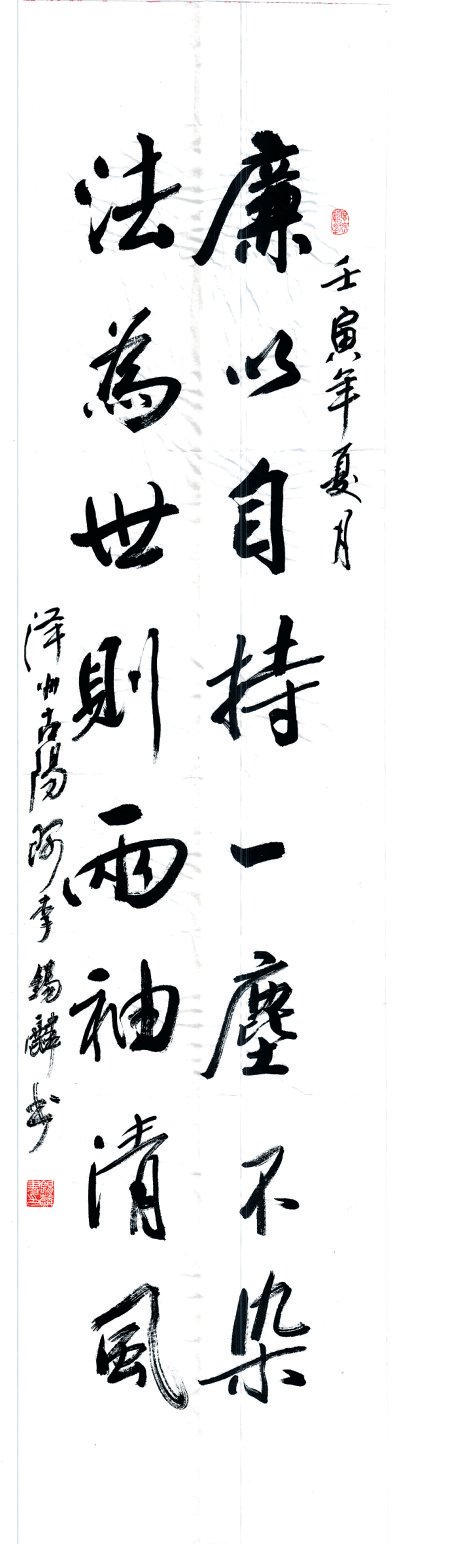 壬寅年夏月
廉以自持一塵不染
法為世則兩袖清風
澤州古陽阿李錫麟书